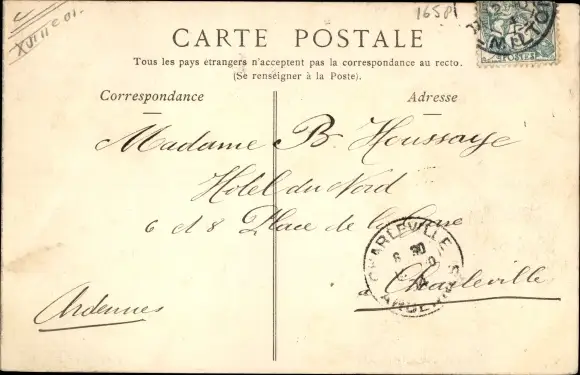 16581
XVIII e 01.
CARTE POSTALE
Tous les pays étrangers n'acceptent pas la correspondance au recto.
(Se renseigner à la Poste).
Correspondance
Adresse
Madame B. Houssaye
Hotel du Nord
6 et 8 Place de la Gare
à Charleville
Ardennes
CHARLEVILLE
POSTES